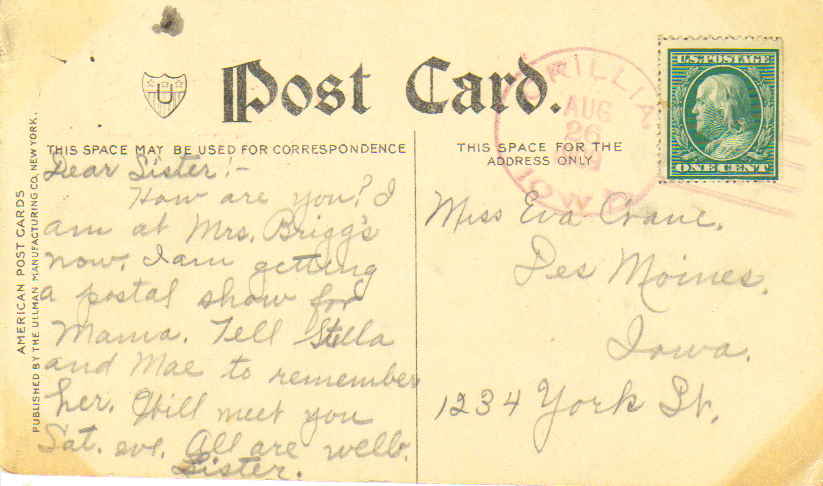 Post Card.
U
THIS SPACE MAY BE USED FOR CORRESPONDENCE
THIS SPACE FOR THE
ADDRESS ONLY
ORILLIA
AUG
26
IOWA
U.S. POSTAGE
ONE CENT
AMERICAN POST CARDS
PUBLISHED BY THE ULLMAN MANUFACTURING CO. NEW YORK.
Dear Sister:-
How are you? I
am at Mrs. Brigg's
now. I am getting
a postal show for
Mama. Tell Stella
and Mae to remember
her. Will meet you
Sat. eve. All are well.
Sister.
Miss Eva Crane.
Des Moines.
Iowa.
1234 York St.